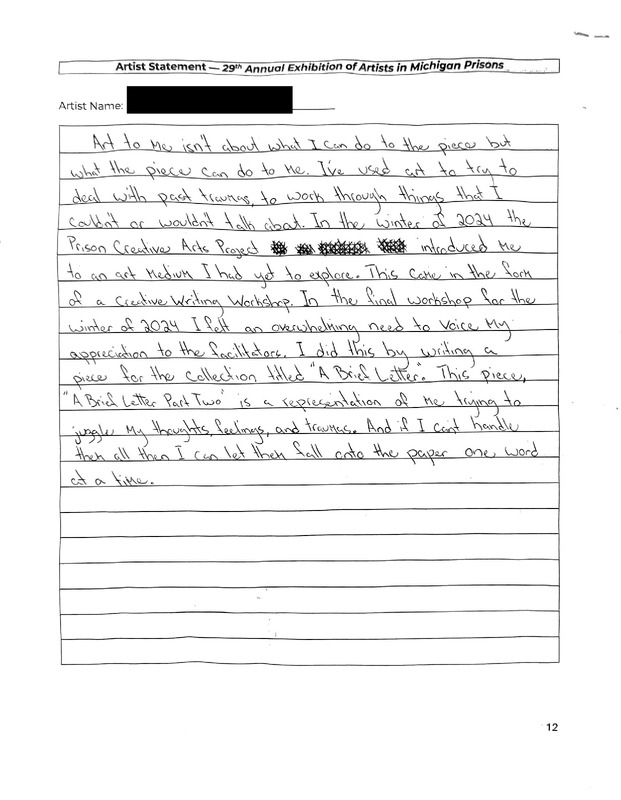 Artist Statement — 29th Annual Exhibition of Artists in Michigan Prisons
Artist Name:
Art to Me isn't about what I can do to the piece but
what the piece can do to Me. I've used art to try to
deal with past traumas, to work through things that I
couldn't or wouldn't talk about. In the winter of 2024 the
Prison Creative Arts Project introduced Me
to an art Medium I had yet to explore. This came in the form
of a Creative Writing Workshop. In the final workshop for the
winter of 2024 I felt an overwhelming need to voice My
appreciation to the facilitators. I did this by writing a
piece for the collection titled "A Brief Letter". This piece,
"A Brief Letter Part Two" is a representation of Me trying to
juggle My thoughts, feelings, and traumas. And if I can't handle
them all then I can let them fall onto the paper one word
at a time.
12